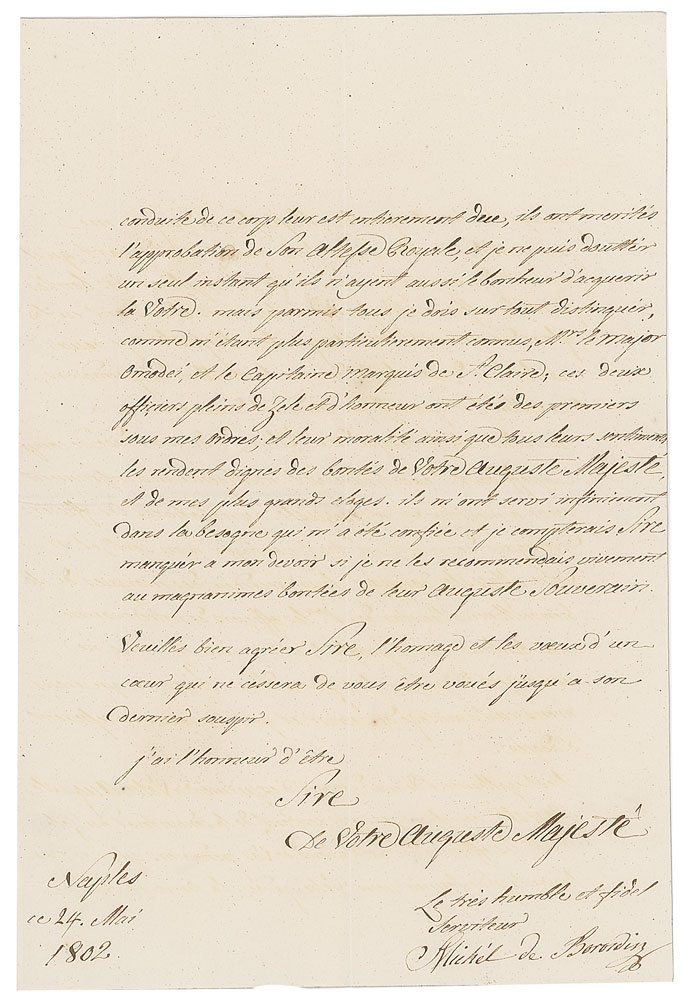 conduite de ce corp leur est entierement due, ils ont merités
l'approbation de Son Altesse Royale, et je ne puis douttér
un seul instant qu'ils n'ayent aussi le bonheur d'acquerir
la Votre. mais parmis tous je dois sur tout distinguér,
comme m'étant plus particulierement connus, Mrs le major
Omodei, et le Capitaine Marquis de St Claire, ces deux
officiers pleins de Zele et d'honneur ont étés des premiers
sous mes ordres, et leur moralité ainsi que tous leurs sentiments
les rendent dignes des bontés de Votre Auguste Majesté,
et de mes plus grands eloges. ils m'ont servi infiniment
dans la besogne qui m'a été confiée et je compterais Sire
manquér a mon devoir si je ne les recommendais vivement
au magnanimes bontées de leur Auguste Souverain.
Veuilles bien agréer Sire, l'homage et les vœux d'un
cœur qui ne céssera de vous être voués jusqu'a son
dernier soupir.
j'ai l'honneur d'être
Sire
De Votre Auguste Majesté
Naples
ce 24. Mai
1802
Le très humble et fidel
Serviteur
Michél de Borosdin